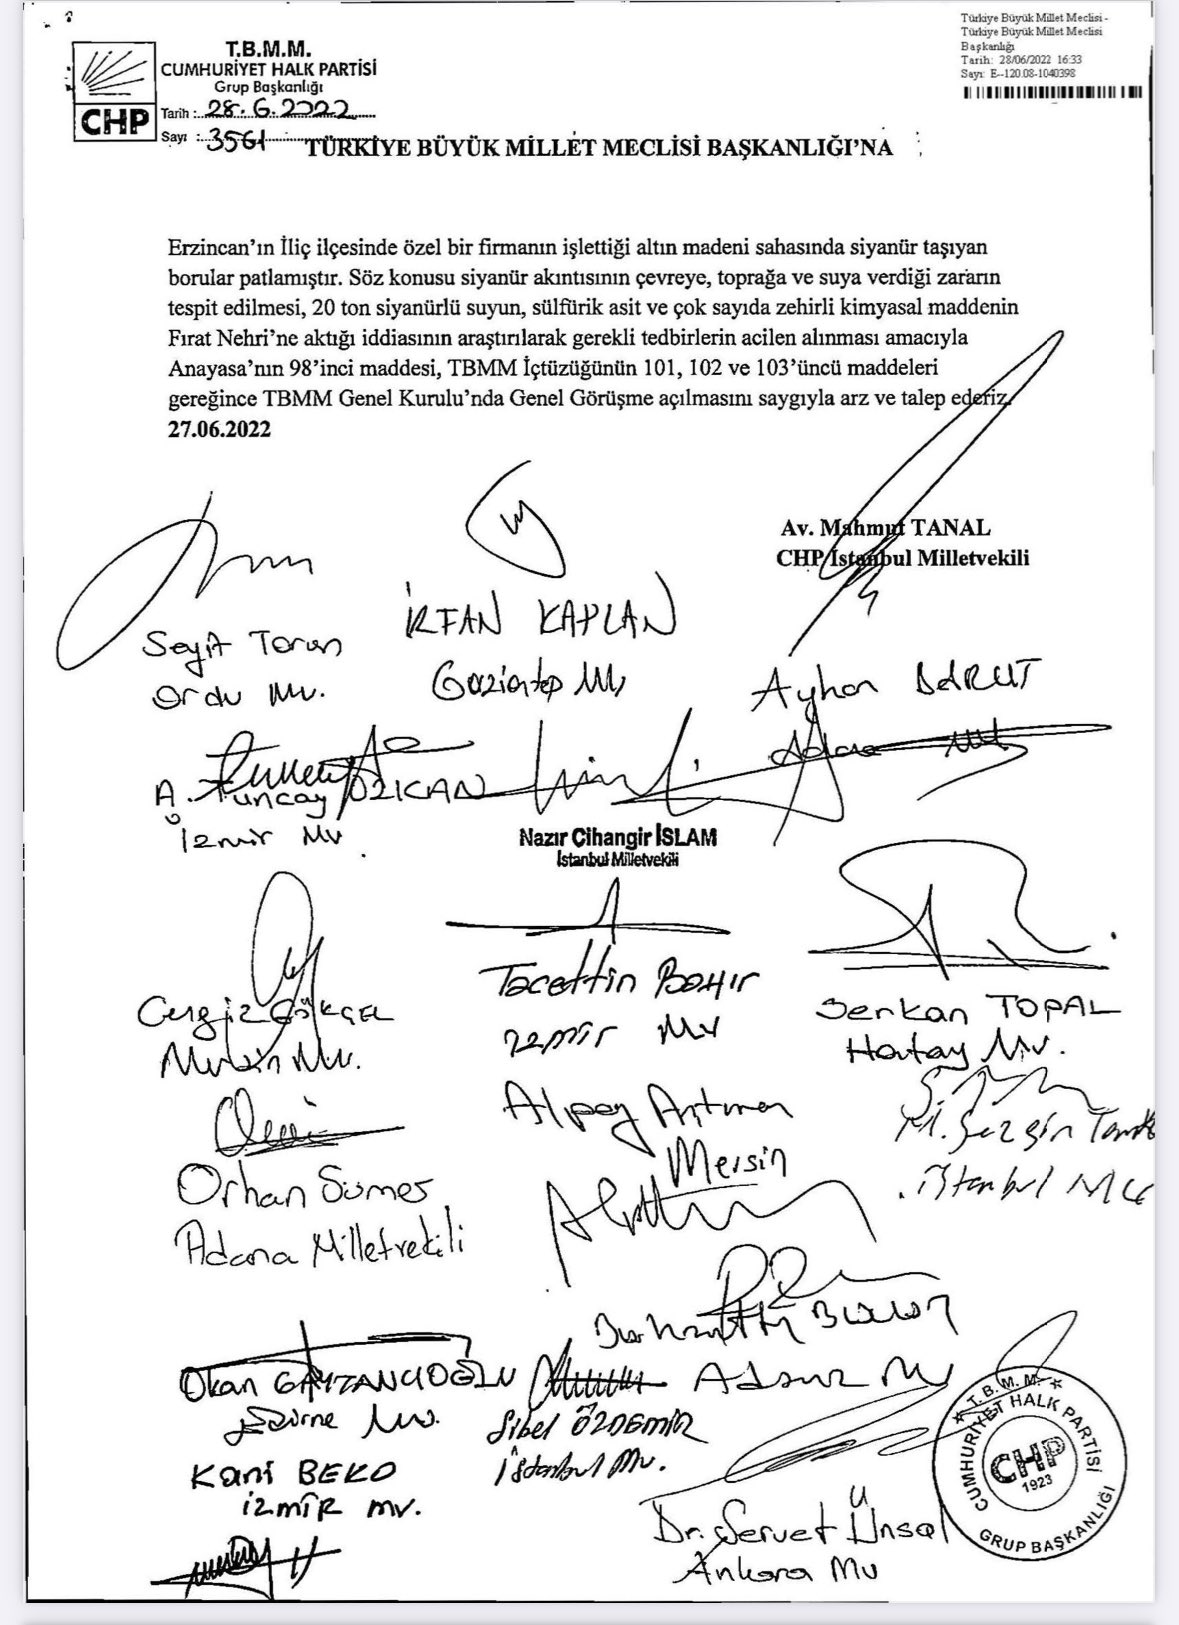 T.B.M.M.
CUMHURİYET HALK PARTİSİ
Grup Başkanlığı
CHP
Tarih :..28.6.2022......
Sayı :..3561............
Türkiye Büyük Millet Meclisi -
Türkiye Büyük Millet Meclisi
Başkanlığı
Tarih: 28/06/2022 16:33
Sayı: E--120.08-1040398
TÜRKİYE BÜYÜK MİLLET MECLİSİ BAŞKANLIĞI'NA
Erzincan'ın İliç ilçesinde özel bir firmanın işlettiği altın madeni sahasında siyanür taşıyan
borular patlamıştır. Söz konusu siyanür akıntısının çevreye, toprağa ve suya verdiği zararın
tespit edilmesi, 20 ton siyanürlü suyun, sülfürik asit ve çok sayıda zehirli kimyasal maddenin
Fırat Nehri'ne aktığı iddiasının araştırılarak gerekli tedbirlerin acilen alınması amacıyla
Anayasa'nın 98'inci maddesi, TBMM İçtüzüğünün 101, 102 ve 103'üncü maddeleri
gereğince TBMM Genel Kurulu'nda Genel Görüşme açılmasını saygıyla arz ve talep ederiz.
27.06.2022
Av. Mahmut TANAL
CHP İstanbul Milletvekili
Seyit Torun
Ordu Mv.
İRFAN KAPLAN
Gaziantep Mv
Ayhan BARUT
Adana Mv.
A. Tuncay ÖZKAN
İzmir Mv
Nazır Cihangir İSLAM
İstanbul Milletvekili
Cengiz GÖKÇEL
Mersin Mv.
Tacettin BAYIR
İzmir Mv
Serkan TOPAL
Hatay Mv.
Alpay Antmen
Mersin
Orhan Sümer
Adana Milletvekili
İstanbul
Burhanettin BULUT
Adana Mv
Okan GAYTANCIOĞLU
Edirne Mv.
Sibel ÖZDEMİR
İstanbul Mv.
Kani BEKO
İZMİR mv.
Dr. Servet Ünsal
Ankara Mv
T.B.M.M.
CUMHURİYET HALK PARTİSİ
CHP
1923
GRUP BAŞKANLIĞI